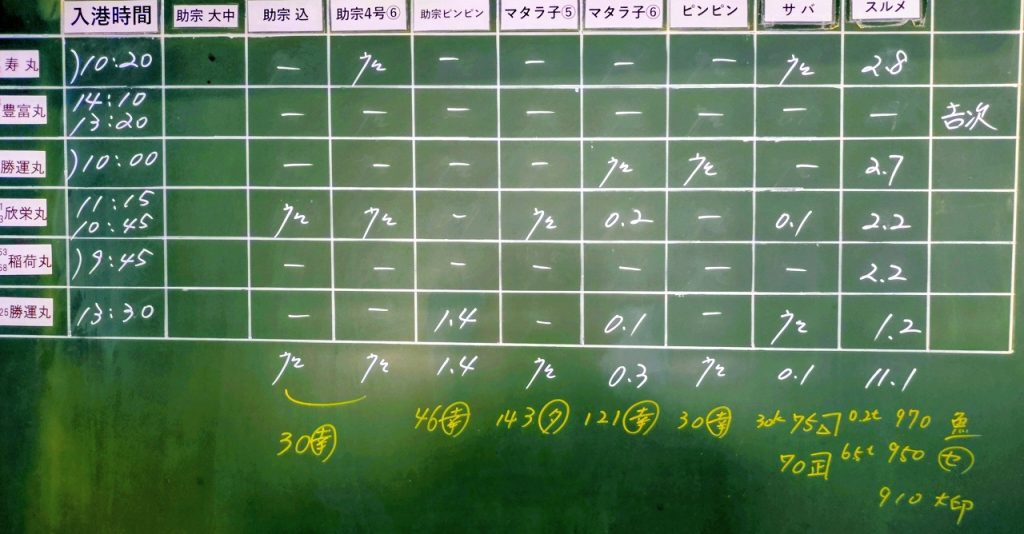 入港時間 助宗 大中 助宗 込 助宗4号⑥ 助宗ピンピン マタラ子⑤ マタラ子⑥ ピンピン サバ スルメ
寿丸 )10:20 — ウロ — — — — ウロ 2.8
豊富丸 14:10 13:20 — — — — — — — — 吉次
勝運丸 )10:00 — — — — ウロ ウロ — 2.7
欣栄丸 11:15 10:45 ウロ ウロ - ウロ 0.2 — 0.1 2.2
稲荷丸 )9:45 — — — — — — — 2.2
勝運丸 13:30 — — 1.4 - 0.1 — ウロ 1.2
ウロ ウロ 1.4 ウロ 0.3 ウロ 0.1 11.1
30 46 143 121 30 75 0.2t 970 魚
70 65t 950
910 大印